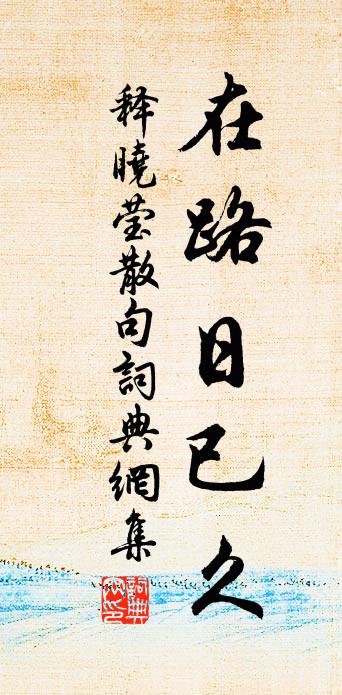 在路日已久
释曉莹散句詞典網集